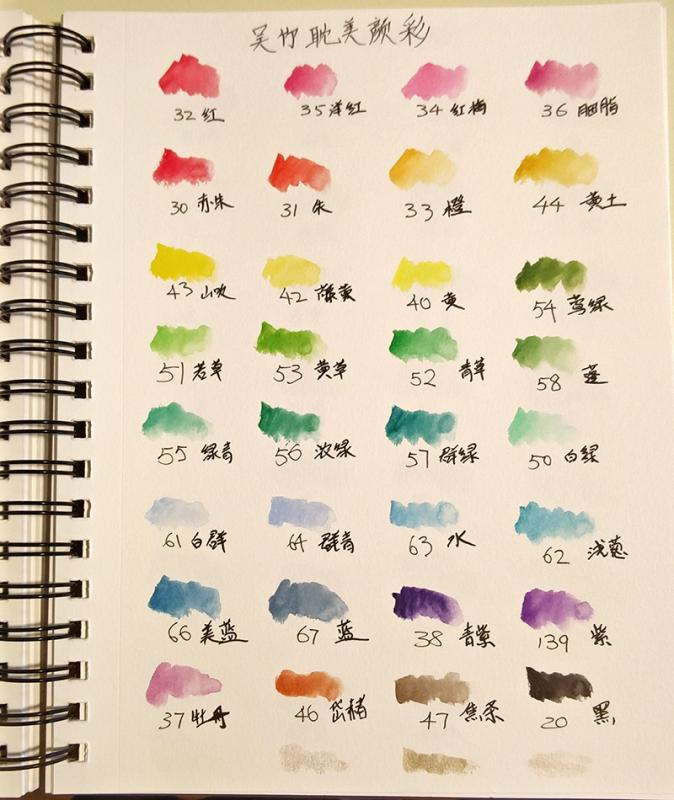 吴竹耽美颜彩
32 红 35 洋红 34 红梅 36 胭脂
30 赤朱 31 朱 33 橙 44 黄土
43 山吹 42 藤黄 40 黄 54 莺绿
51 若草 53 黄草 52 青草 58 蓬
55 绿青 56 浓绿 57 群绿 50 白绿
61 白群 64 群青 63 水 62 浅葱
66 美蓝 67 蓝 38 青紫 139 紫
37 牡丹 46 岱赭 47 焦茶 20 黑